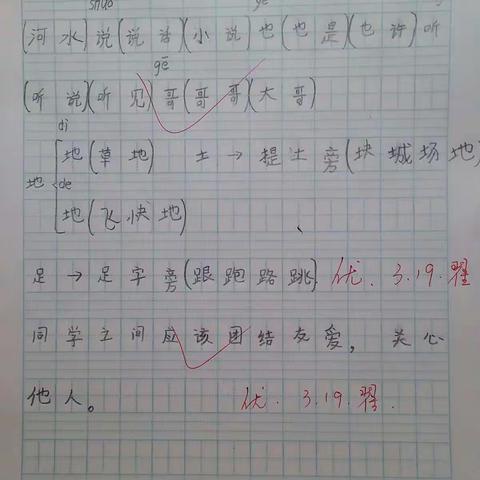 shuō yě
(河水)说(说话)(小说)也(也是)(也许)听
gē
(听说)(听见)哥(哥哥)(大哥)
dì
地(草地) 土→提土旁(块城场地)
地 de
地(飞快地)
足→足字旁(跟跑路跳) 优.3.19.翟
同学之间应该团结友爱，关心
他人。 优.3.19.翟.